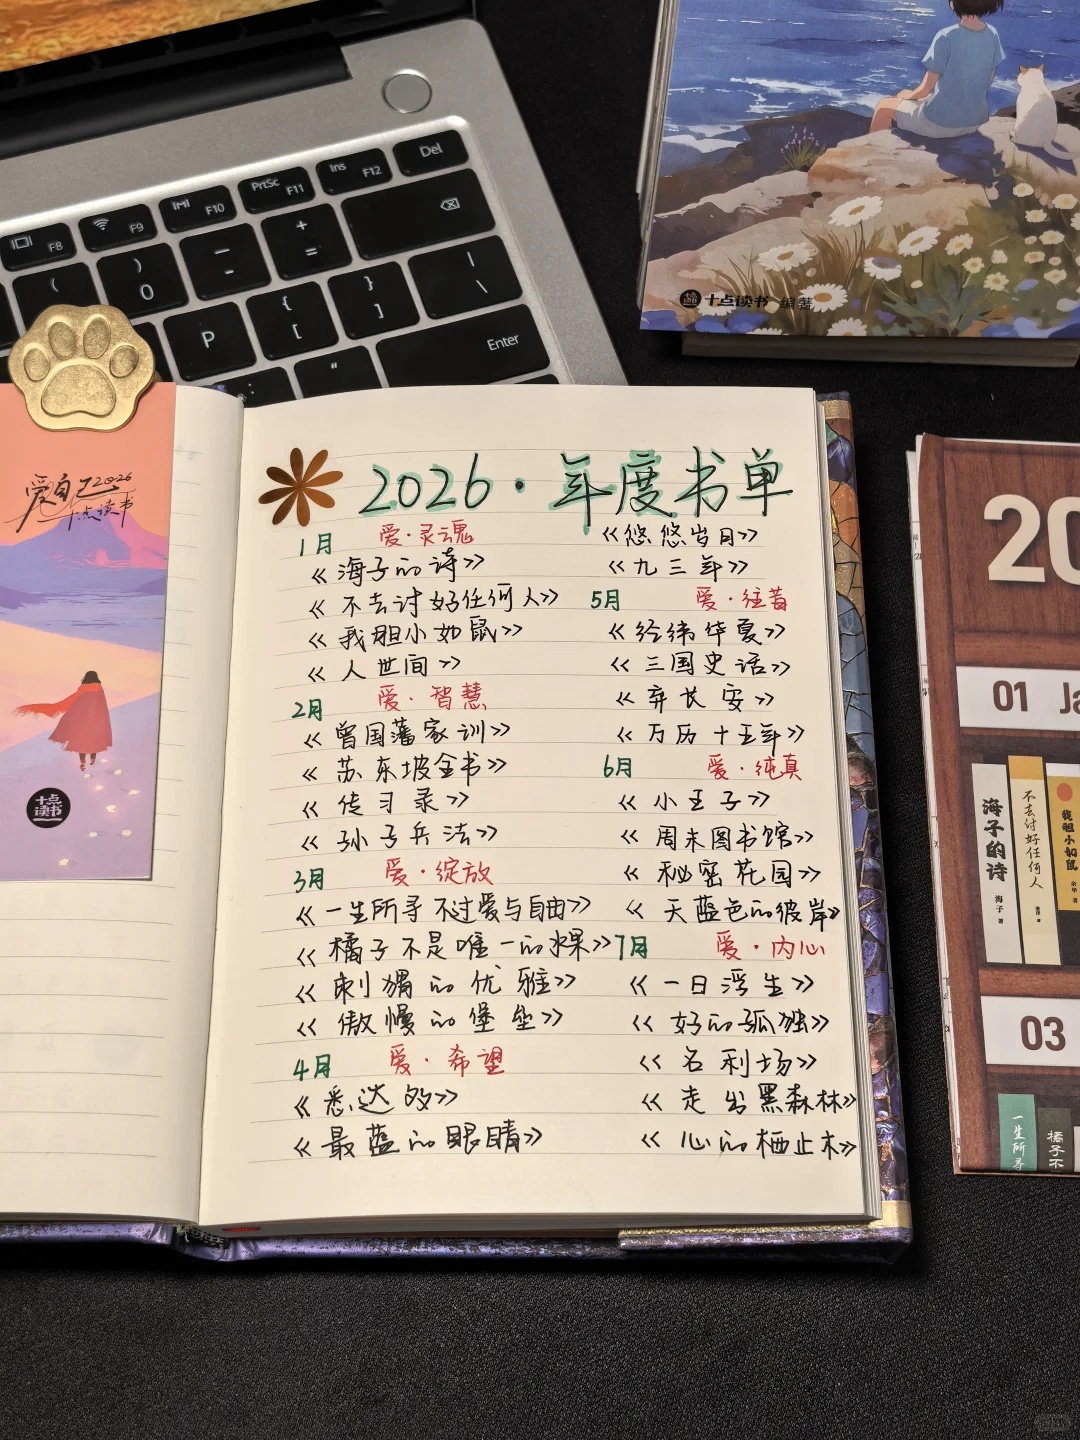 Del
Ins F12
PrtSc F11
F10
F9
F8
+
=
)
0
(
{
[
}
]
|
\
P
"
Enter
十点读书 编著
爱自己2026
十点读书
十点读书
2026·年度书单
1月 爱·灵魂
《海子的诗》
《不去讨好任何人》
《我胆小如鼠》
《人世间》
2月 爱·智慧
《曾国藩家训》
《苏东坡全书》
《传习录》
《孙子兵法》
3月 爱·绽放
《一生所寻不过爱与自由》
《橘子不是唯一的水果》
《刺猬的优雅》
《傲慢的堡垒》
4月 爱·希望
《悉达多》
《最蓝的眼睛》
《悠悠岁月》
《九三年》
5月 爱·往昔
《经纬华夏》
《三国史话》
《弃长安》
《万历十五年》
6月 爱·纯真
《小王子》
《周末图书馆》
《秘密花园》
《天蓝色的彼岸》
7月 爱·内心
《一日浮生》
《好的孤独》
《名利场》
《走出黑森林》
《心的栖止木》
20
01 Ja
海子的诗 海子 著
不去讨好任何人
我胆小如鼠 余华 著
03
一生所寻
橘子不